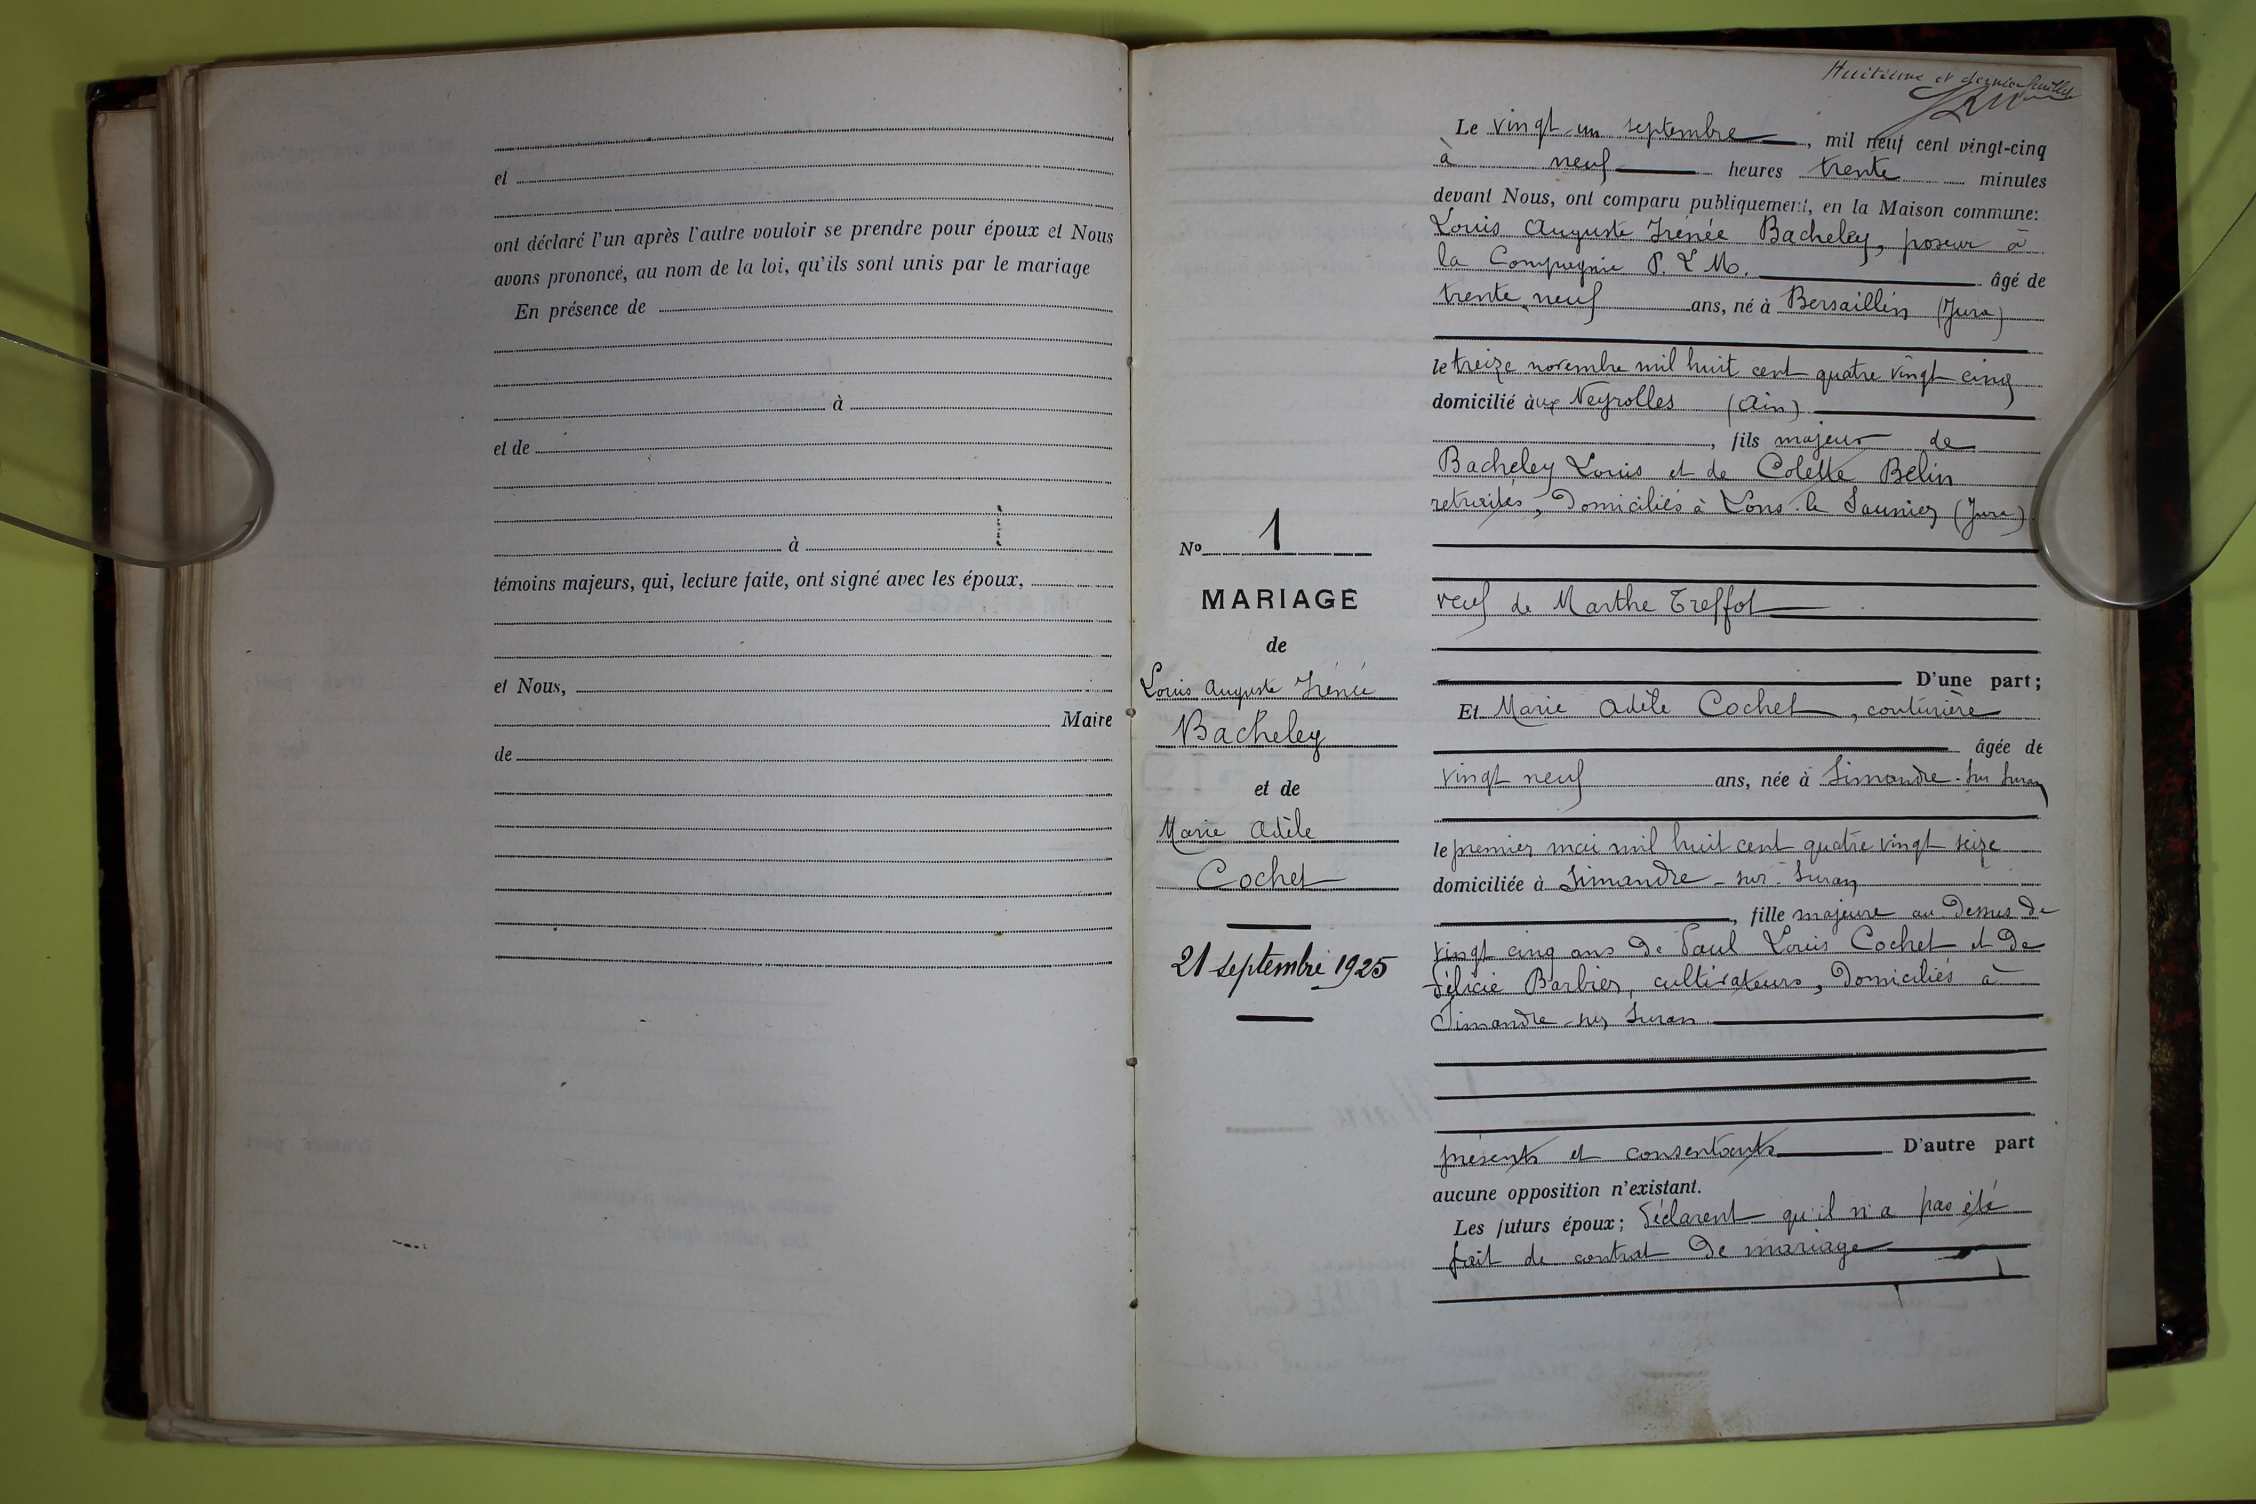 et
ont déclaré l'un après l'autre vouloir se prendre pour époux et Nous
avons prononcé, au nom de la loi, qu'ils sont unis par le mariage
En présence de
à
et de
à
témoins majeurs, qui, lecture faite, ont signé avec les époux,
et Nous,
Maire
de
Huitième et dernier feuillet
No 1
MARIAGE
de
Louis Auguste Irénée
Bacheley
et de
Marie Adèle
Cochet
21 septembre 1925
Le vingt-un septembre, mil neuf cent vingt-cinq
à neuf heures trente minutes
devant Nous, ont comparu publiquement, en la Maison commune:
Louis Auguste Irénée Bacheley, poseur à
la Compagnie P. L M. âgé de
trente neuf ans, né à Bersaillin (Jura)
le treize novembre mil huit cent quatre vingt cinq
domicilié aux Neyrolles (Ain)
, fils majeur de
Bacheley Louis et de Colette Belin
retraités, Domiciliés à Lons-le Saunier (Jura)
veuf de Marthe Treffot
D'une part;
Et Marie Adèle Cochet, couturière
âgée de
vingt neuf ans, née à Simandre-sur Suran
le premier mai mil huit cent quatre vingt seize
domiciliée à Simandre-sur-Suran
, fille majeure au Dessus de
vingt cinq ans De Paul Louis Cochet et De
Félicie Barbier, cultivateurs, Domiciliés à
Simandre-sur Suran
présents et consentants D'autre part
aucune opposition n'existant.
Les futurs époux; Déclarent qu'il n'a pas été
fait de contrat De mariage